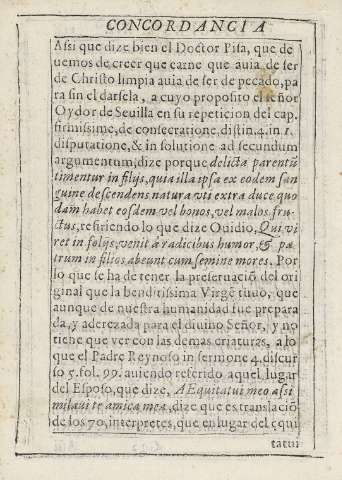 CONCORDANCIA
Assi que dize bien el Doctor Pisa, que de
uemos de creer que carne que auia de ser
de Christo limpia auia de ser de pecado, pa
ra sin el darsela, a cuyo proposito el señor
Oydor de Seuilla en su repeticion del cap.
firmissime, de consecratione, distin. 4. in 1.
disputatione, & in solutione ad secundum
argumentum, dize porque delicta parentũ
timentur in filijs, quia illa ipsa ex eodem san
guine descendens natura vti extra duce quo
dam habet eosdem vel bonos, vel malos fru-
ctus, refiriendo lo que dize Ouidio, Qui vi
ret in folijs, venit à radicibus humor, & pa
trum in filios abeunt cum semine mores. Por
lo que se ha de tener la preseruaciõ del ori
ginal que la benditissima Virgẽ tuuo, que
aunque de nuestra humanidad fue prepara
da, y aderezada para el diuino Señor, y no
tiene que ver con las demas criaturas, a lo
que el Padre Reynoso in sermone 4. discur
so 5. fol. 99. auiendo referido aquel lugar
del Esposo, que dize, A Equitatui meo assi
milaui te amica mea, dize que es translaciõ
de los 70, interpretes, que en lugar del equi
tatui